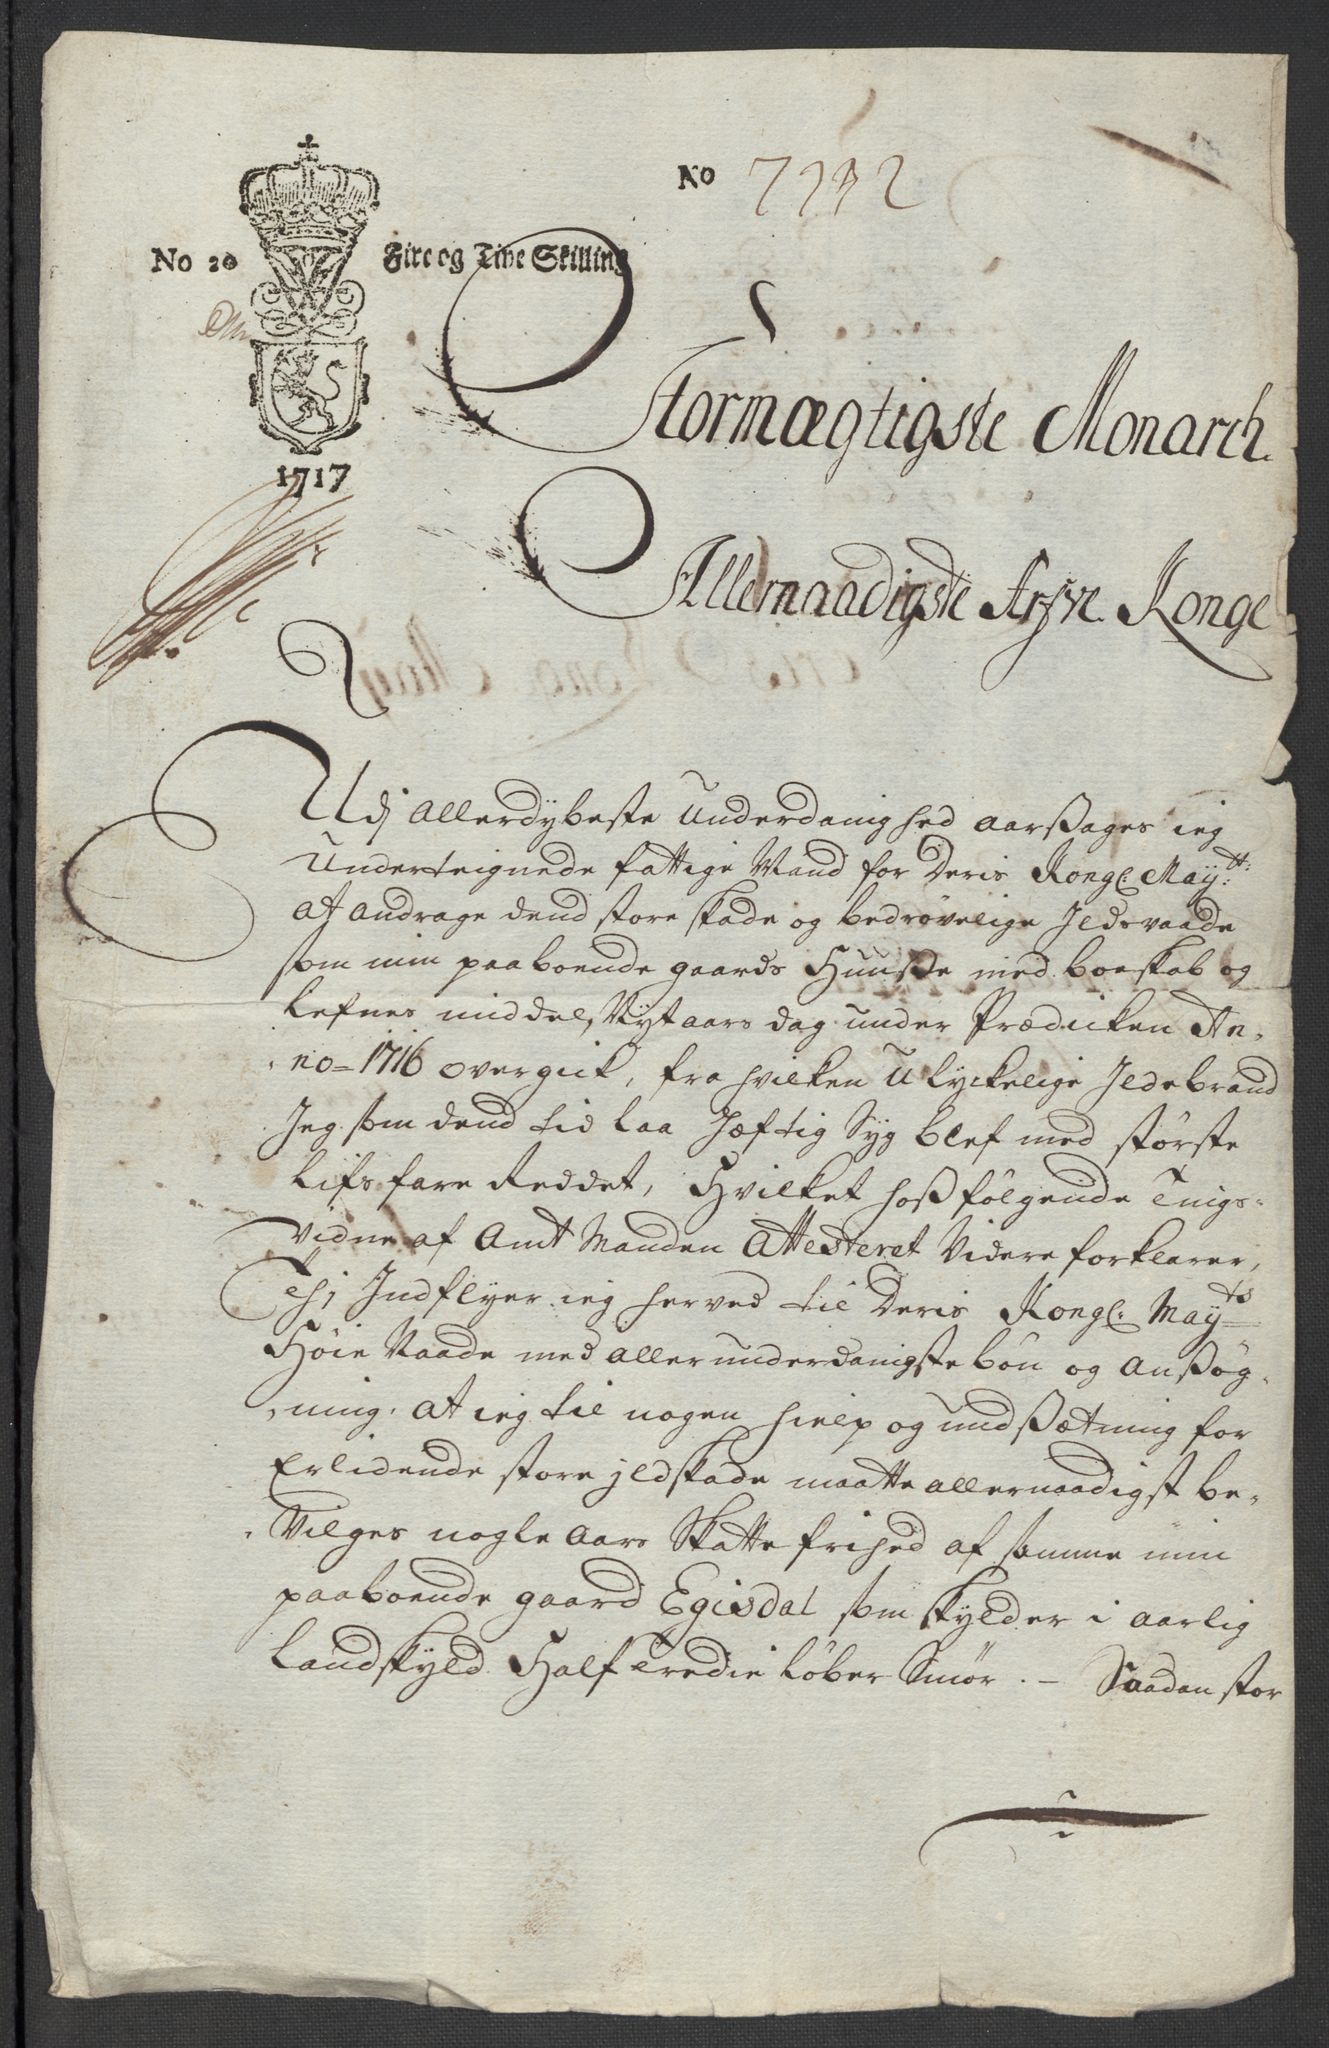 No 7172
No 20 Fire og Tive Skilling
1717
Stormægtigste Monarch.
Allernaadigste Arfve Konge
Udj allerdybeste Underdanighed aarsages ieg
Underteignede fattige Mand for Deris Kongl: May:tt:
at andrage dend store skade og bedrøvelige Jldsvaade
som min paaboende gaards Huuse med boeskab og
Lefnes middel, Nyt aars dag under Prædicken An,
no=1716 overgick, fra hvilken Ulyckelige Jldebrand
Jeg som dend tid laa hæftig Syg blef med største
Lifs fare Reddet, Hvilket hosfølgende Tings-
vidne af Amt Manden Attesteret Videre forklarer,
Thj Indflyer ieg herved til Deris Kongl: Mayts
Høie Naade med allerunderdanigste bøn og ansøg,
,ning. at ieg til nogen hielp og undsætning for
Erlidende store jldskade maatte allernaadigst be-
,Vilges nogle aars Skatte frihed af samme min
paaboende gaard Egisdal som skylder i aarlig
Landskyld Half tredie Løber Smør. – Saadan stor